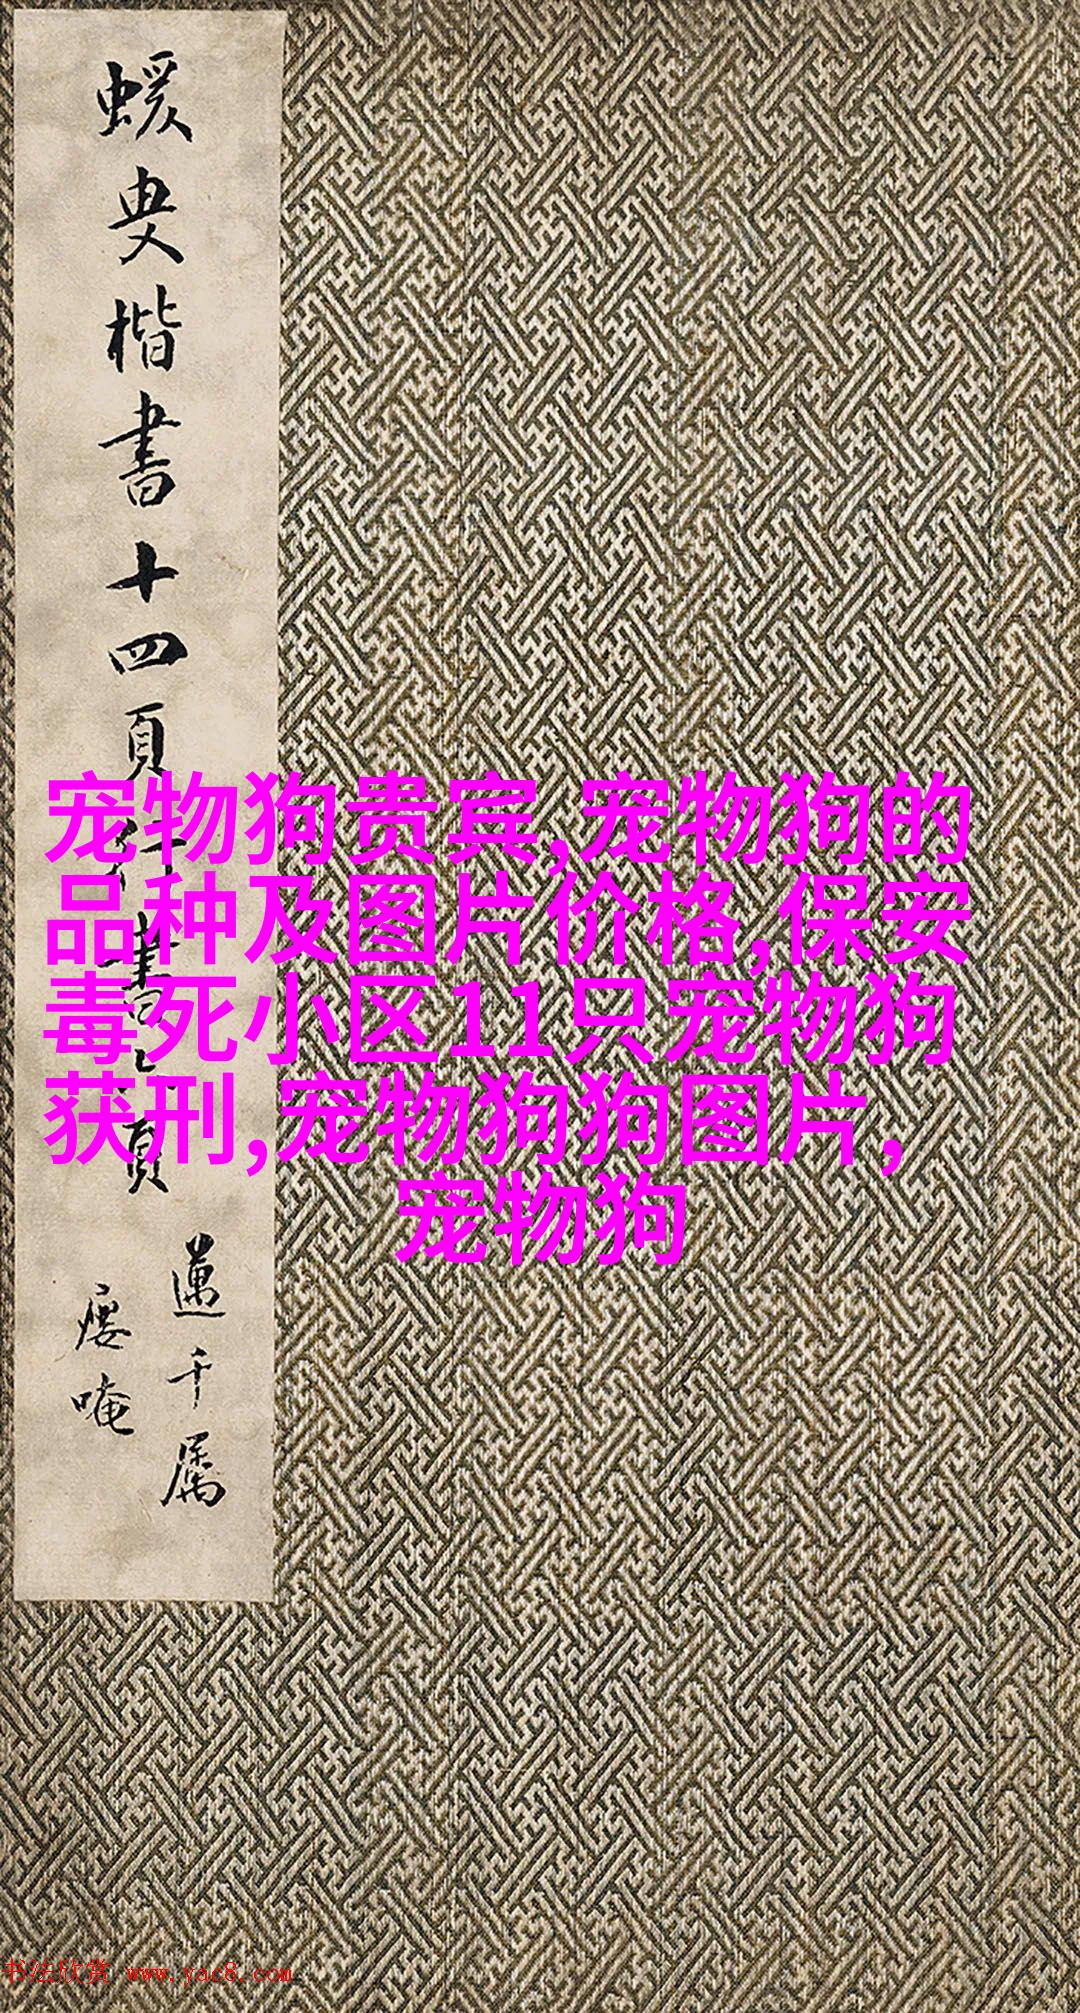 蝯叟楷書十四頁行書二頁
蘧千屬
宠物狗贵宾,宠物狗的
品种及图片价格,保安
毒死小区11只宠物狗
获刑,宠物狗狗图片,
宠物狗
书法欣赏 www.yac8.com